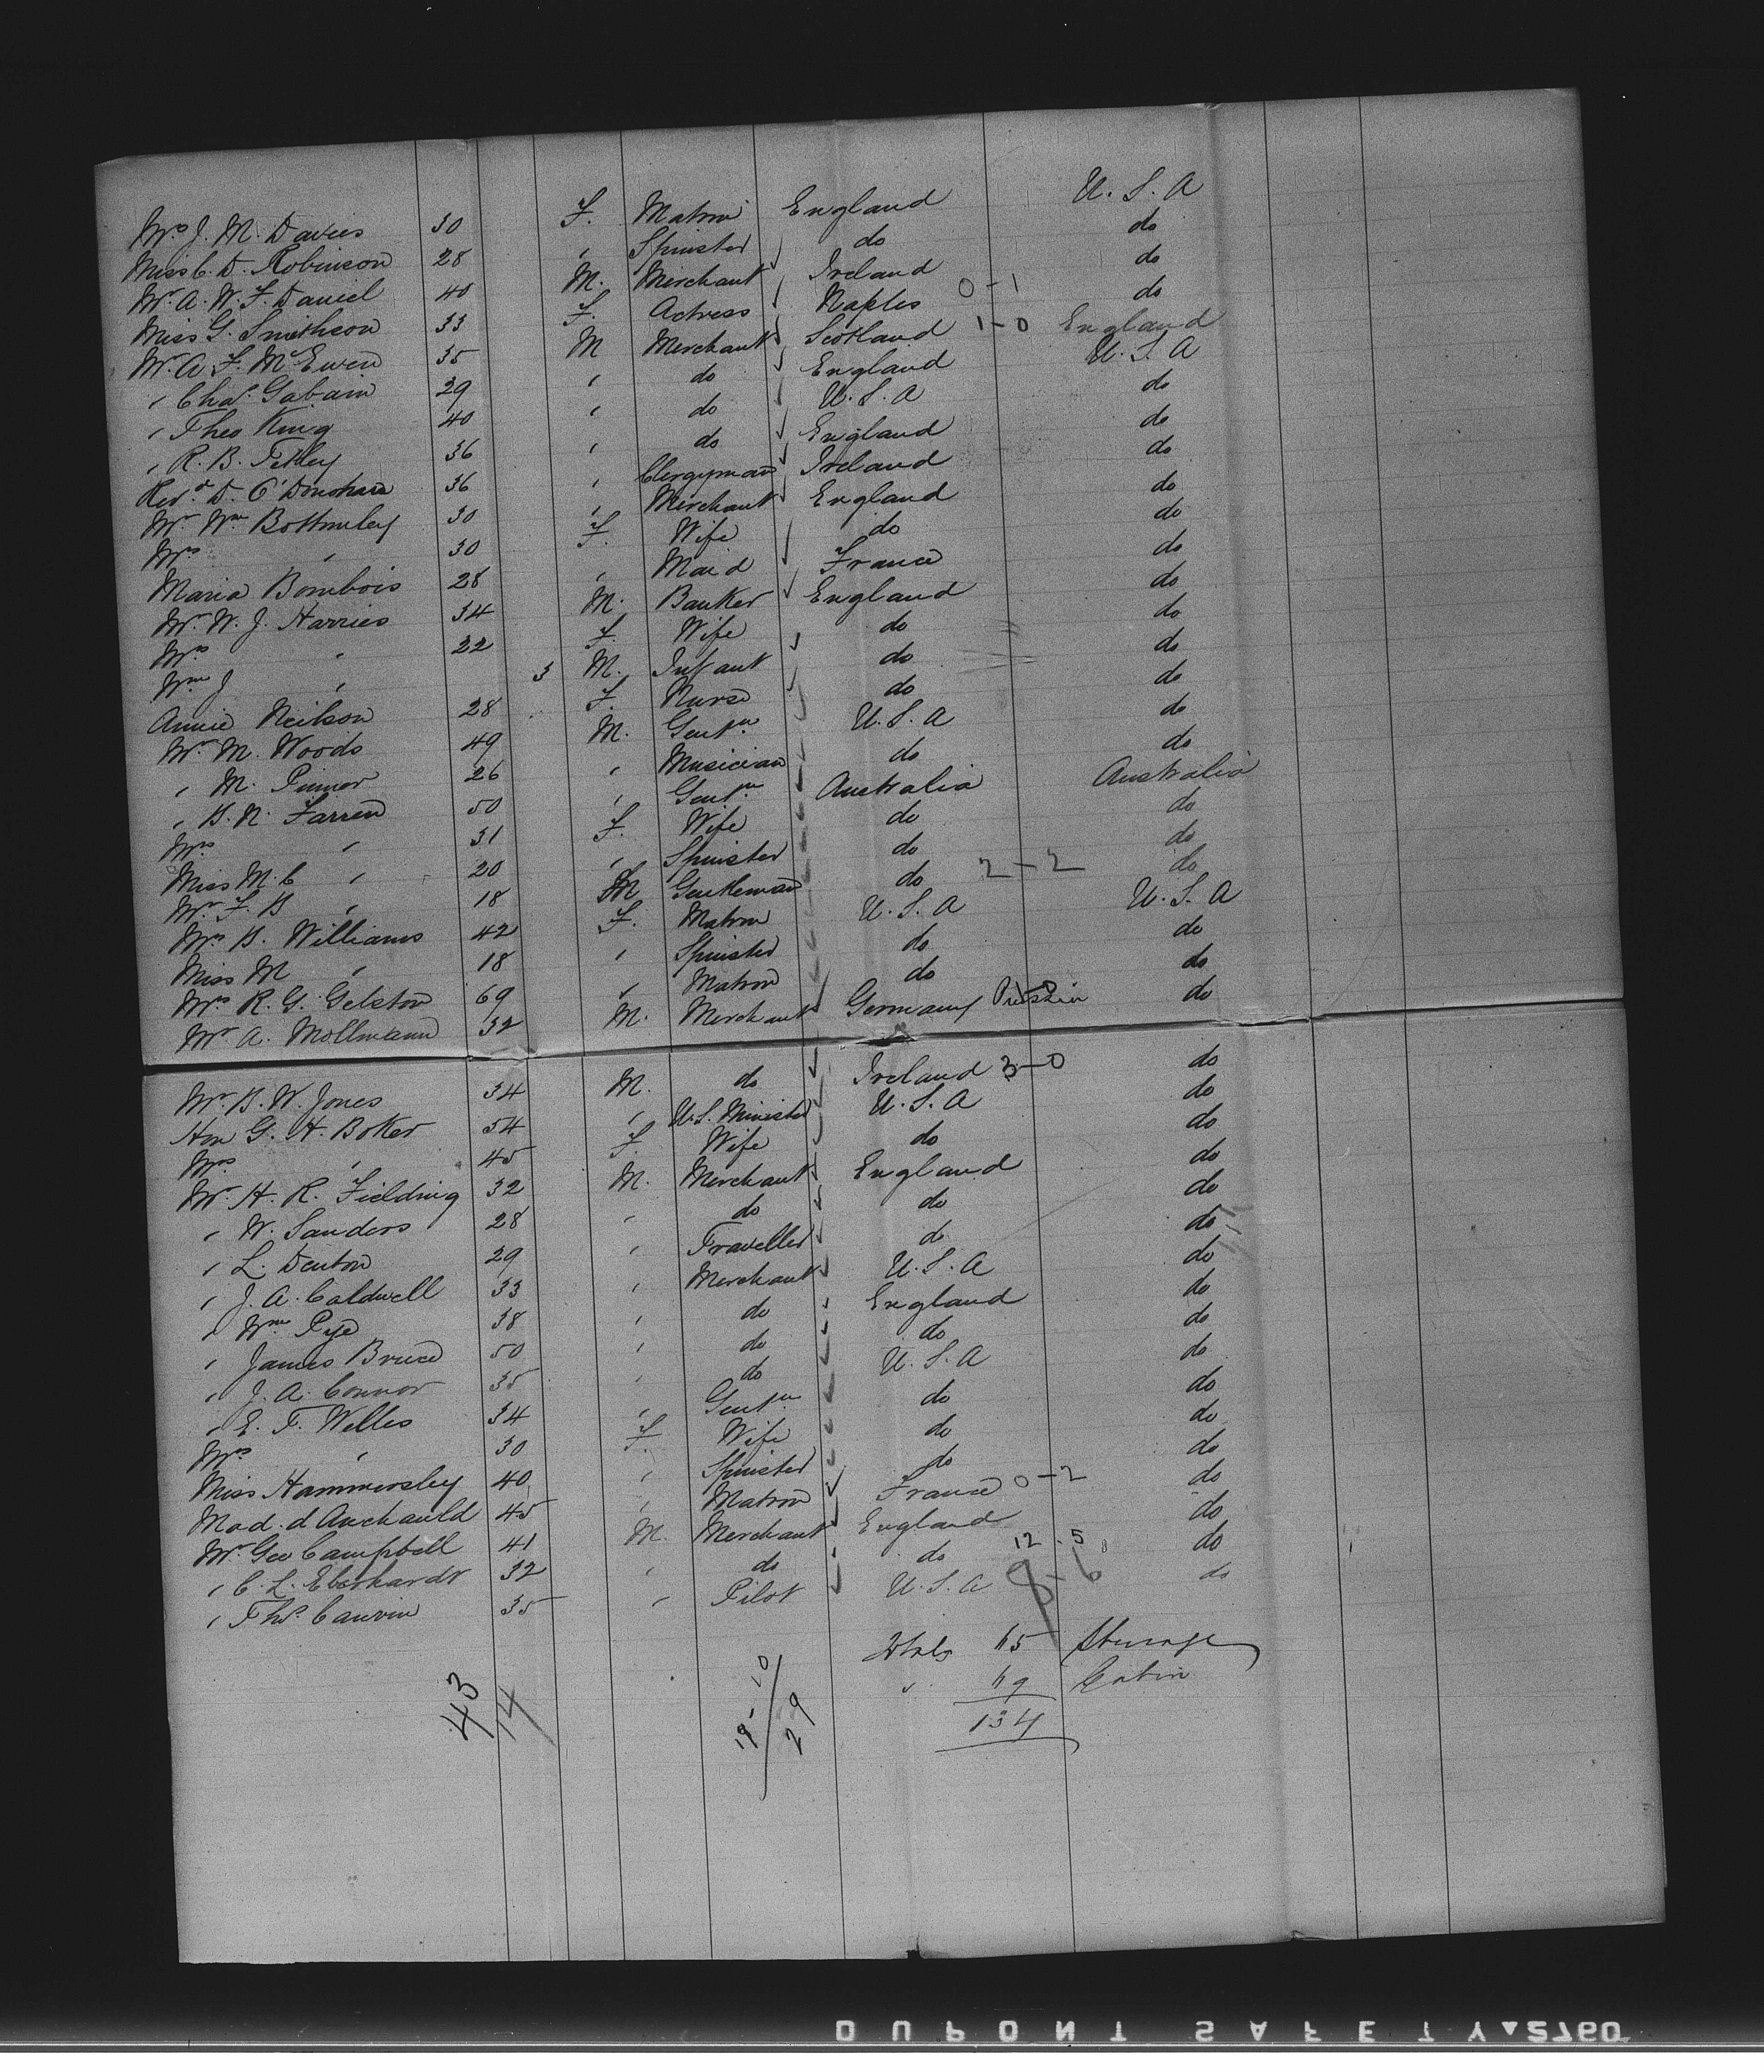 Mrs J. M. Davies 30 F. Matron England U.S.A
Miss C. D. Robinson 28 " Spinster do do
Mr. A. W. F. Daniel 40 M. Merchant Ireland do
Miss G. Smithson 33 F. Actress Naples 0-1 do
Mr. A. F. McEwen 35 M Merchant Scotland 1-0 England
" Chas. Gabain 29 " do England U.S.A
" Theo King 40 " do U.S.A do
" R. B. Tetley 36 " do England do
Revd. D. O'Donohue 36 " Clergyman Ireland do
Mr Wm Bottomley 30 " Merchant England do
Mrs " 30 F. Wife do do
Maria Bombois 28 " Maid France do
Mr. W. J. Harries 34 M. Banker England do
Mrs " 22 F. Wife do do
Wm J " 3 M. Infant do do
Annie Neilson 28 F. Nurse do do
Mr. M. Woods 49 M. Gentn. U.S.A do
" M. Pinner 26 " Musician do do
" B. N. Farren 50 " Gentn. Australia Australia
Mrs " 31 F. Wife do do
Miss M. C " 20 " Spinster do do
Mr. F. B " 18 M Gentleman do 2-2 do
Mrs B. Williams 42 F. Matron U.S.A U.S.A
Miss M " 18 " Spinster do do
Mrs R. G. Gelston 69 " Matron do do
Mr A. Mollmann 32 M. Merchant Germany Prussia do
Mr B. W. Jones 34 M. do Ireland 3-0 do
Hon G. H. Boker 54 " U.S. Minister U.S.A do
Mrs " 45 F. Wife do do
Mr. H. R. Fielding 32 M. Merchant England do
" W. Sanders 28 " do do do
" L. Denton 29 " Traveller do do
" J. A. Caldwell 33 " Merchant U.S.A do
" Wm Pye 38 " do England do
" James Bruce 50 " do do do
" J. A. Connor 35 " do U.S.A do
" E. T. Welles 34 " Gentn. do do
Mrs " 30 F. Wife do do
Miss Hammersley 40 " Spinster do do
Mad. d Anchauld 45 " Matron France 0-2 do
Mr Geo Campbell 41 M. Merchant England do
" C. L. Eberhardt 32 " do do 12.5 do
" Thos. Canvin 35 " Pilot U.S.A 8-6 do
Totals 65 Steerage
" 69 Cabin
134
43 14
19-10
29
DUPONT SAFETY 2760